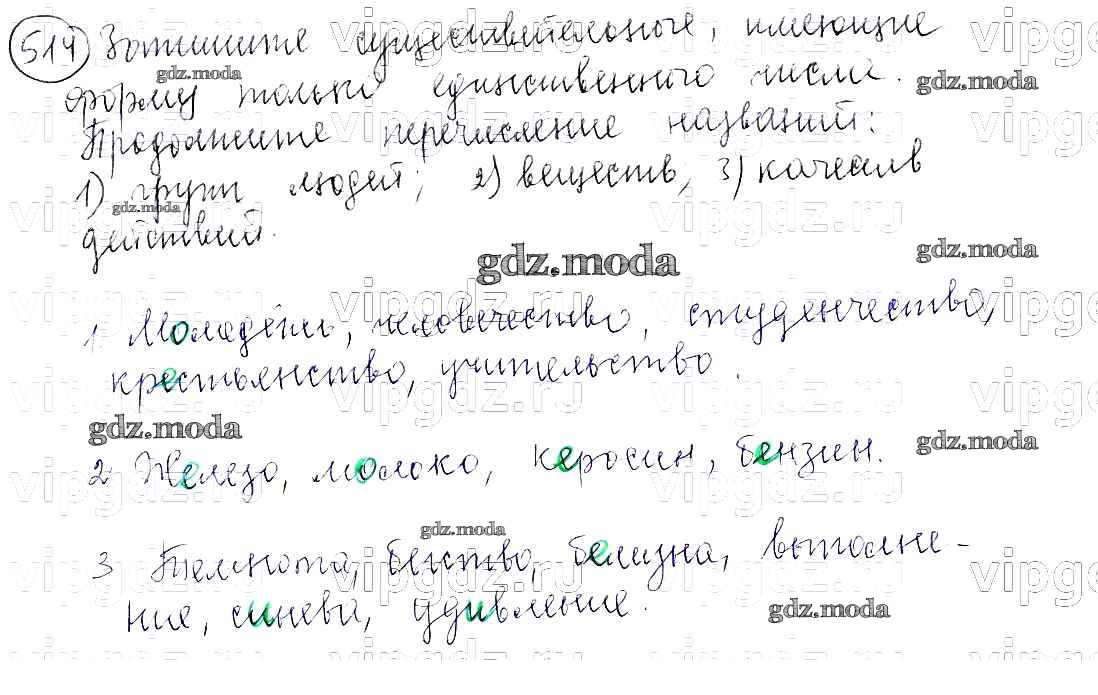 514 Запишите существительные, имеющие
форму только единственного числа.
Продолжите перечисление названий:
1) групп людей; 2) веществ; 3) качеств
действий.
1 Молодёжь, человечество, студенчество,
крестьянство, учительство.
2 Железо, молоко, керосин, бензин.
3 Темнота, бегство, белизна, выполне-
ние, синева, удивление.
gdz.moda
vipgdz.ru